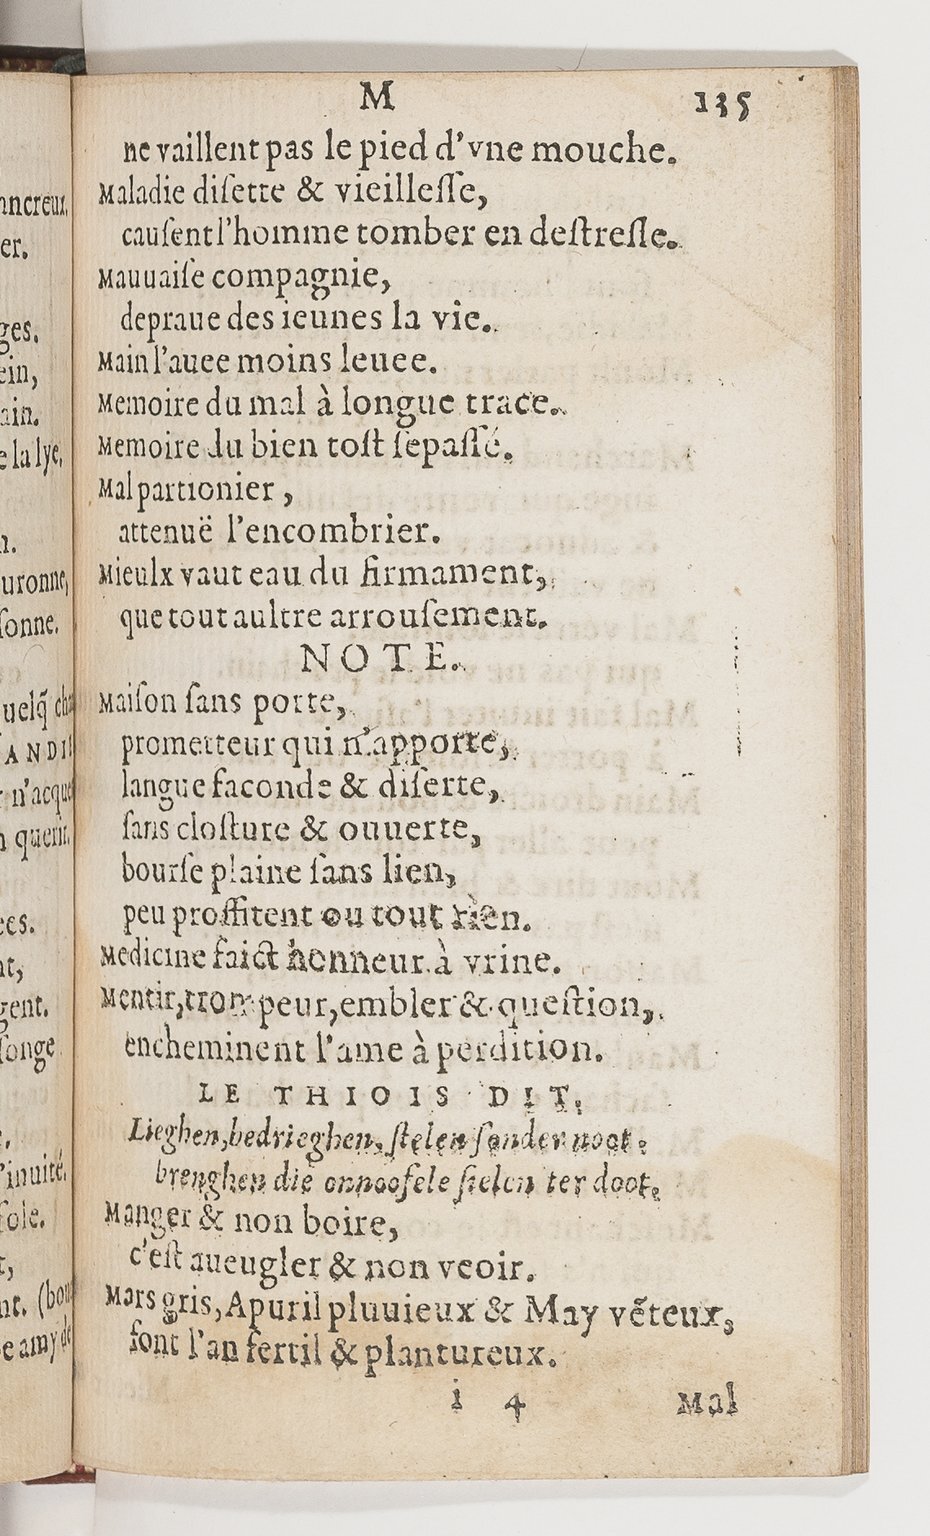 M 135
ne vaillent pas le pied d'vne mouche.
Maladie diſette & vieilleſſe,
cauſent l'homme tomber en deſtreſſe.
Mauuaiſe compagnie,
depraue des ieunes la vie.
Main l'auee moins leuee.
Memoire du mal à longue trace.
Memoire du bien toſt ſepaſſé.
Mal partionier,
attenuë l'encombrier.
Mieulx vaut eau du firmament,
que tout aultre arrouſement.
NOTE.
Maiſon ſans porte,
prometteur qui n'apporte,
langue faconde & diſerte,
ſans cloſture & ouuerte,
bourſe plaine ſans lien,
peu proffitent ou tout rien.
Medicine faict honneur à vrine.
Mentir, trompeur, embler & queſtion,
encheminent l'ame à perdition.
LE THIOIS DIT.
Lieghen, bedrieghen, ſtelen ſonder noot:
brenghen die onnooſele ſielen ter doot.
Manger & non boire,
c'eſt aueugler & non veoir.
Mars gris, Apuril pluuieux & May vẽteux,
font l'an fertil & plantureux.
i 4 Mal
ancreux.
er.
ges.
ein,
ain.
e la lye,
n.
uronne,
ſonne.
uelq̃ cha
ANDI
n'acque
querir.
ees.
nt,
gent.
ſonge
'inuité.
ſole.
nt. (bon
e amy de